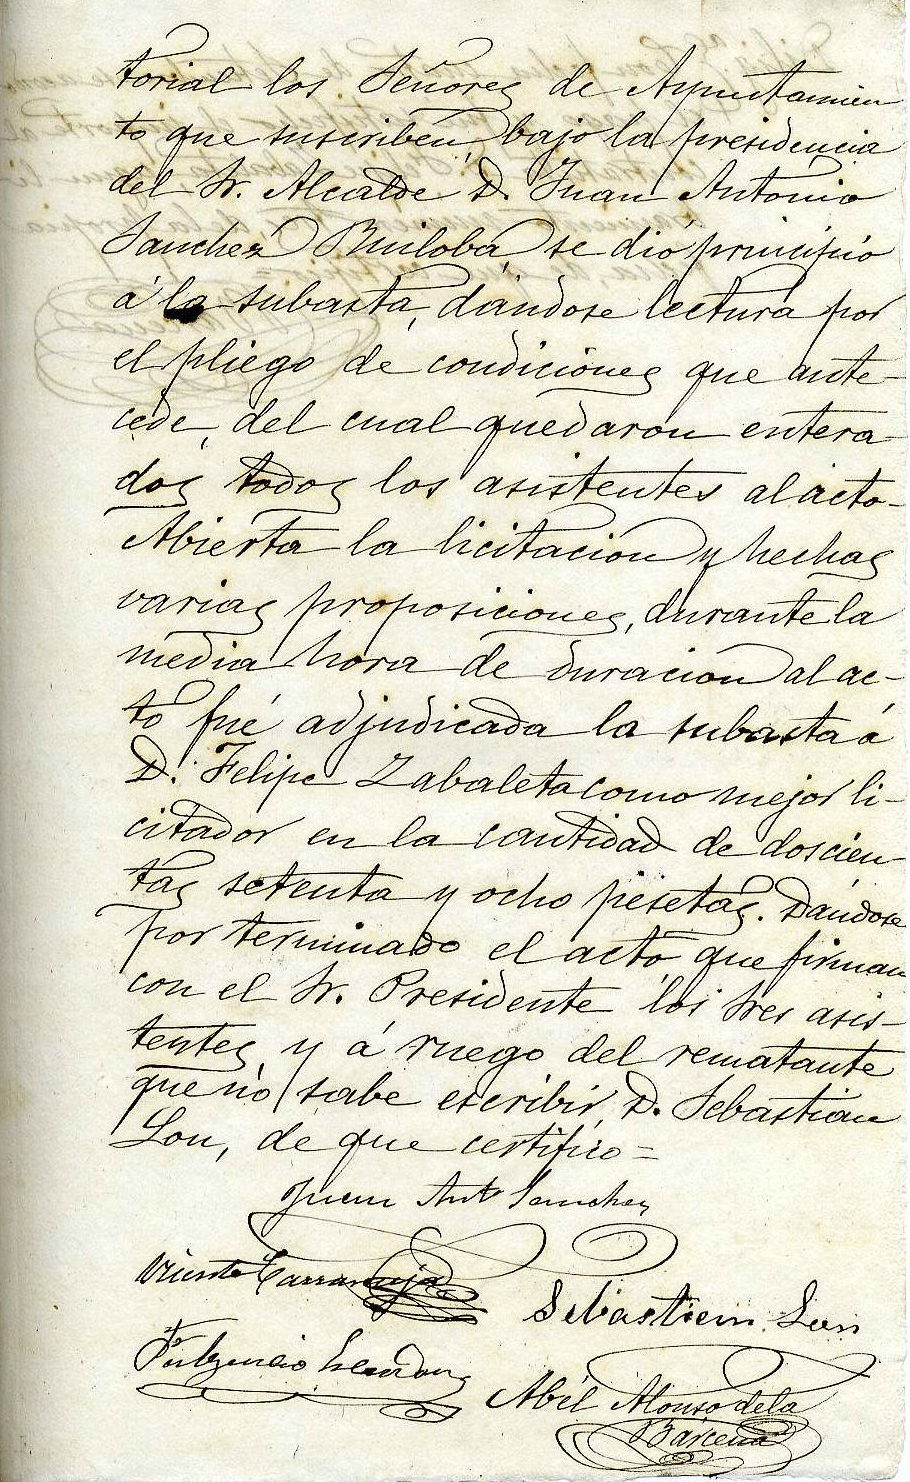 torial los Señores de Ayuntamien
to que suscriben bajo la presidencia
del Sr. Alcalde D. Juan Antonio
Sanchez Builoba, se dió principio
á la subasta, dándose lectura por
el pliego de condiciones que ante-
cede, del cual quedaron entera-
dos todos los asistentes al acto-
Abierta la licitacion y hechas
varias proposiciones, durante la
media hora de duracion al ac-
to fué adjudicada la subasta á
D. Felipe Zabaleta como mejor li-
citador en la cantidad de doscien-
tas setenta y ocho pesetas. Dándose
por terminado el acto que firman
con el Sr. Presidente los Sres asis-
tentes y á ruego del rematante
que no sabe escribir, D. Sebastian
Lon, de que certifico=
Juan Ant.º Sanchez
Vicente
Sebastian Lon
Fulgencio
Abél Alonso de la
Bárcena